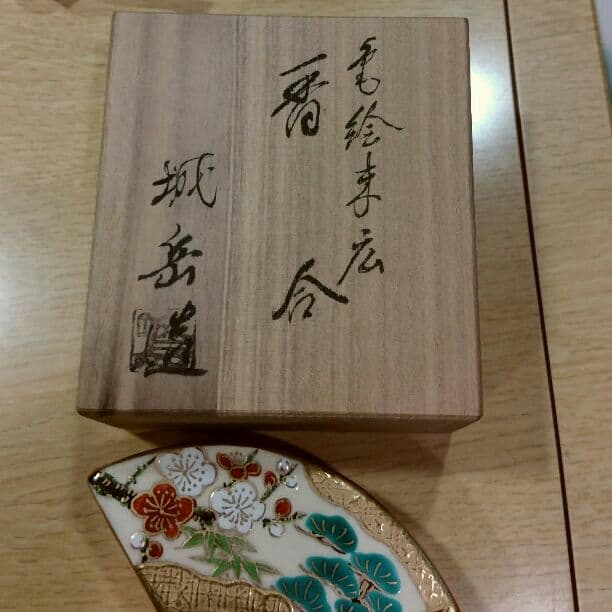 色絵末広
香合
城岳造